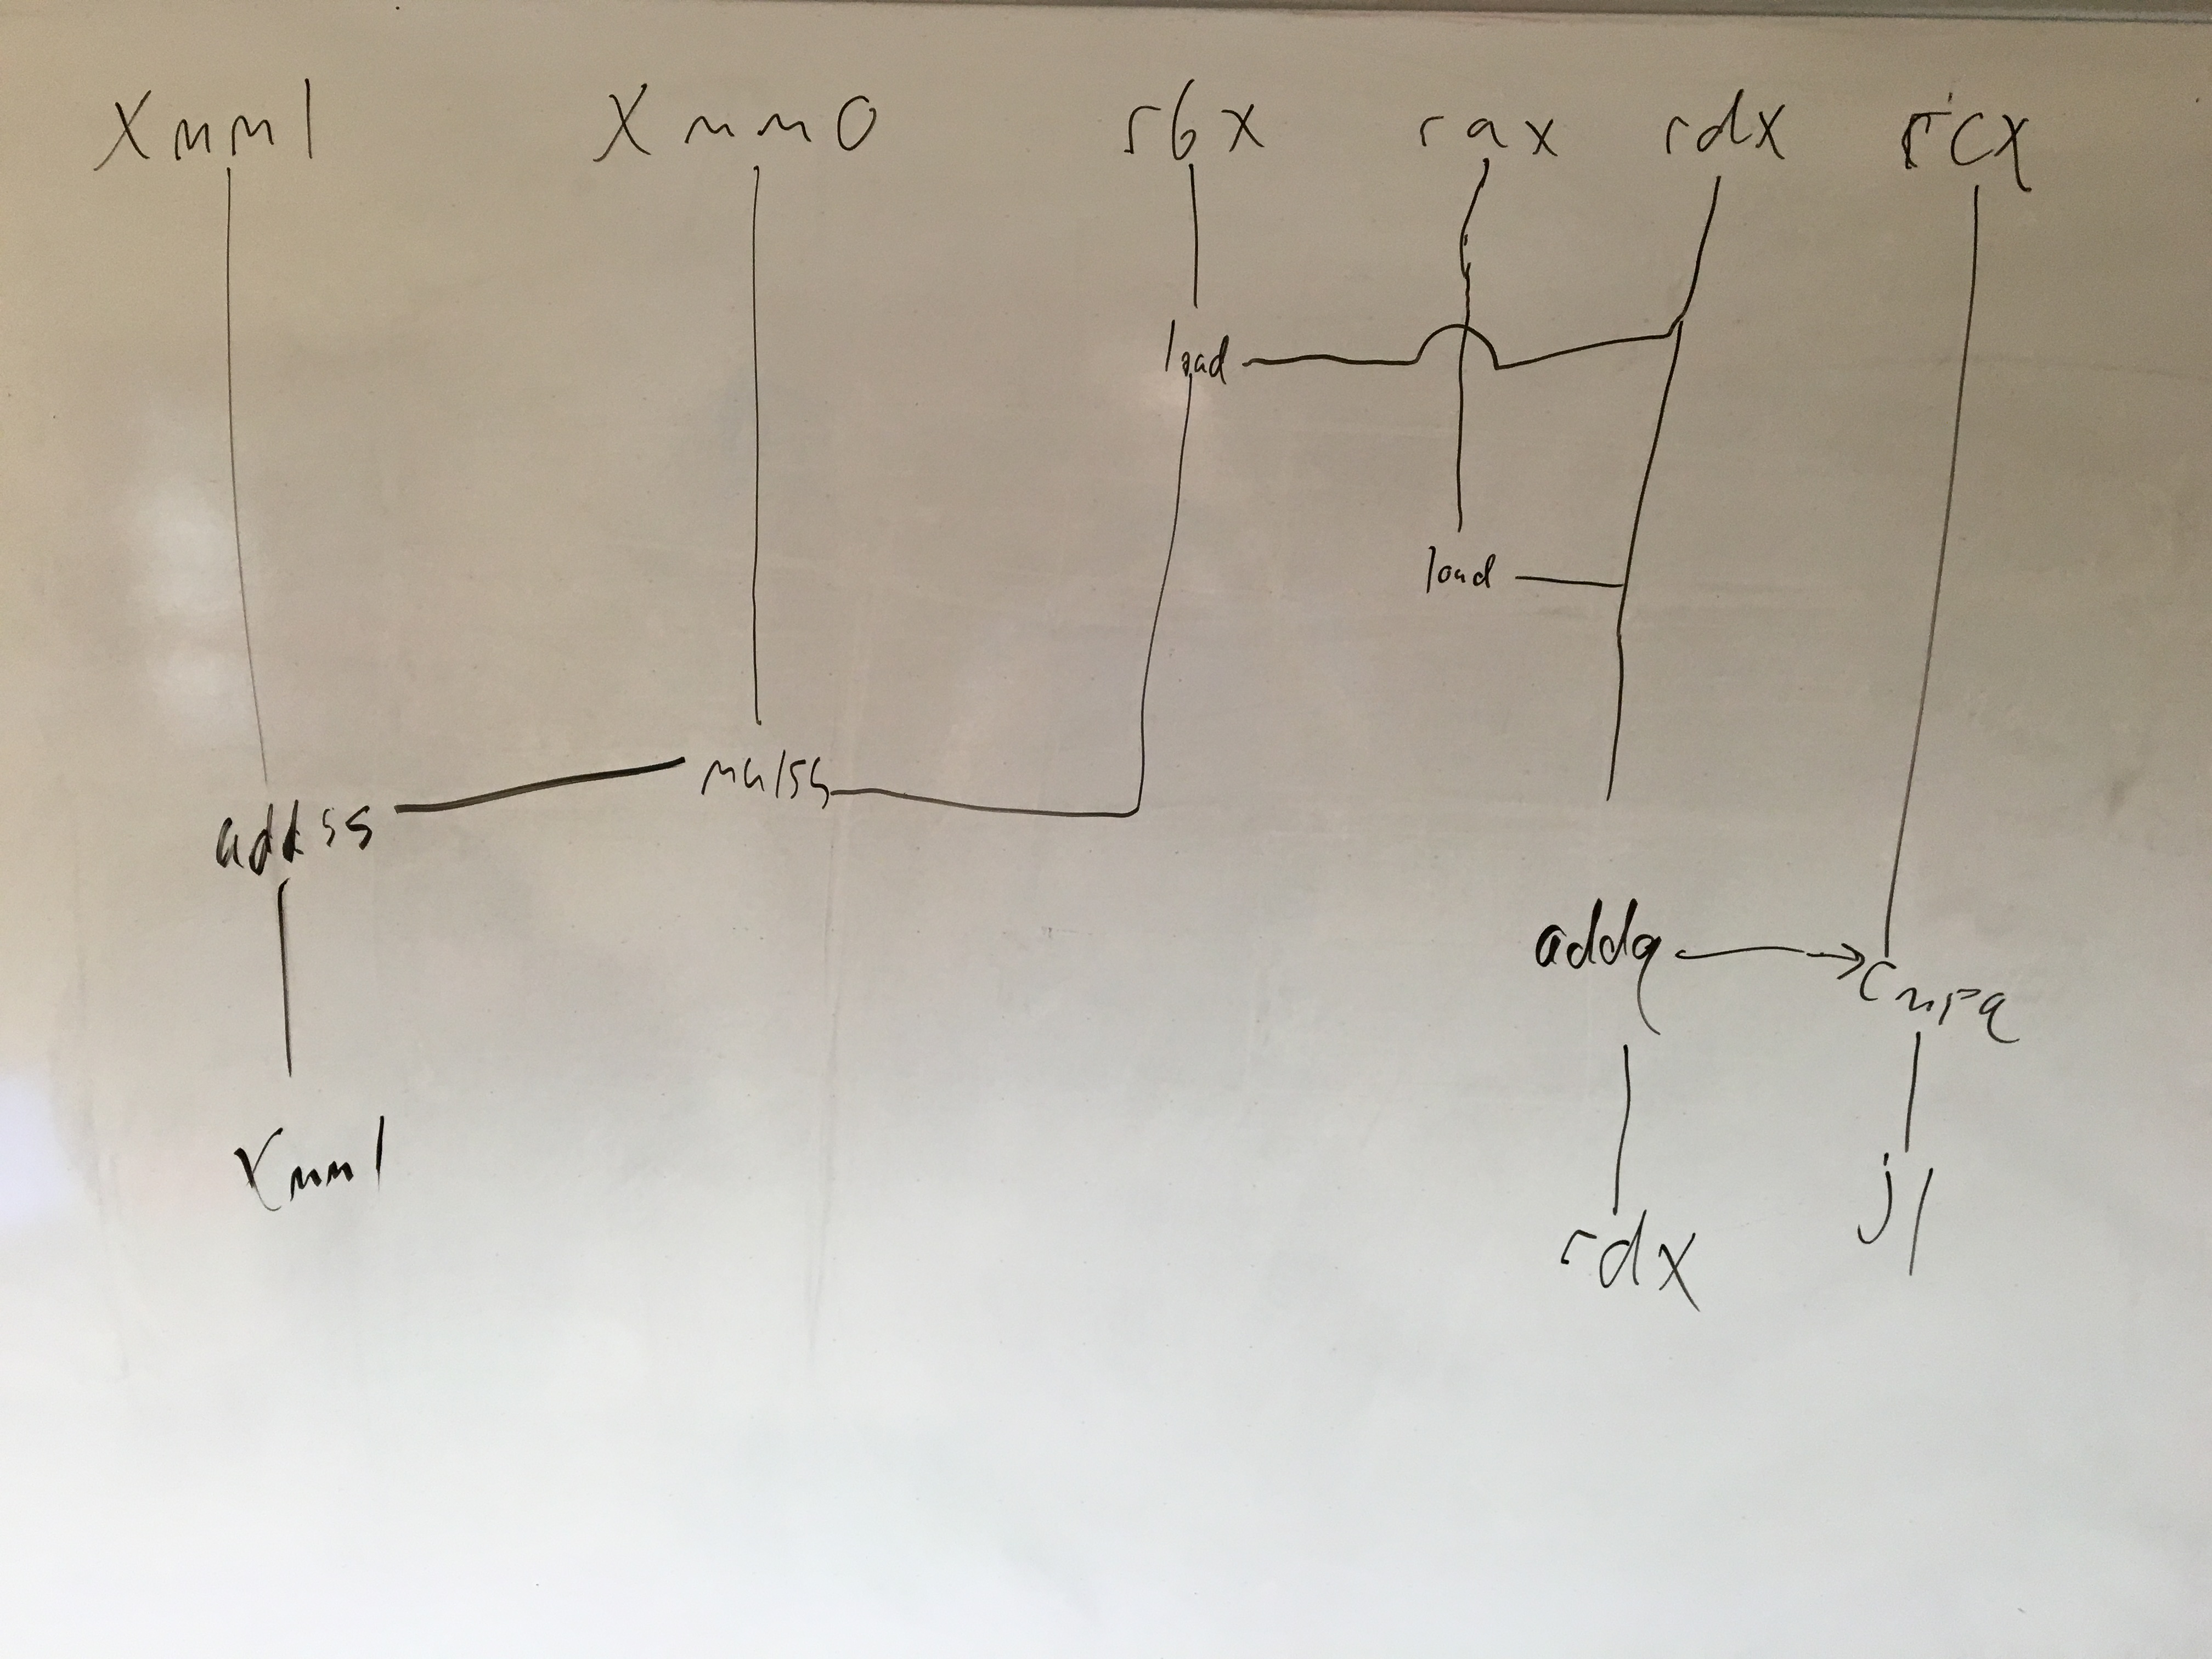 xmm1 xmm0 rbx rax rdx rcx
load
load
mulss
addss
addq cmpq
xmm1
rdx jl